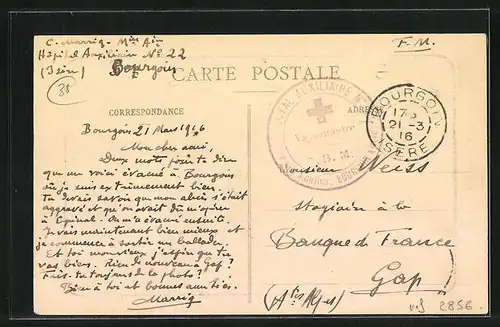 C. Marriq - Min Ain
Hôpital Auxiliaire No 22
(Isère) Bourgoin
F.M.
38
CARTE POSTALE
CORRESPONDANCE
ADRE
AUXILIAIRE
Vaguemestre
S.B.M.
BOURGOIN
17
21-3
16
ISÈRE
Bourgoin 21 Mars 1916
Mon cher ami,
Deux mots pour te dire
que me voici évacué à Bourgoin
où je suis extrêmement bien.
Tu devais savoir que mon abcès s'était
aggravé et qu'on avait dû m'opérer
à Epinal. On m'a évacué ensuite.
Je vais maintenant bien mieux et
je commence à sortir en ballade.
Et toi mon vieux j'espère que tu
vas bien. Rien de nouveau à Gap ?
Fais-tu toujours de la photo ?
Bien à toi et bonnes amitiés.
Marriq
Monsieur Weiss
stagiaire à la
Banque de France
Gap
(Htes Alpes)
2856